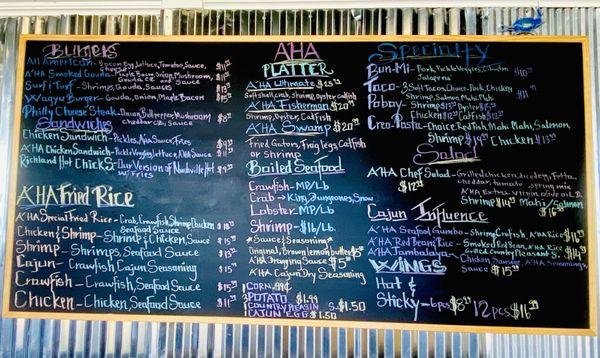 Burgers
All American - Bacon, Egg, Lettuce, Tomato, Sauce,
A'HA Smoked Gouda - Maple Bacon, Onion, Mushroom,
Surf & Turf - Shrimps, Gouda, Sauces
Wagyu Burger - Gouda, Onion, Maple Bacon
Philly Cheese Steak - Onion, Bellpepper, Mushroom
Sandwichs
Chicken Sandwich - Pickles, Aha Sauce, Fries
A'HA Chicken Sandwich - Pickle Veggies, Lettuce, A'HA Sauce
Richland Hot Chicks - Our Version of Nashville Hot
w/ Fries
A'HA Fried Rice
A'HA Special Fried Rice - Crab, Crawfish, Shrimp, Chicken
Seafood Sauce
Chicken & Shrimp - Shrimp & Chicken, Sauce
Shrimp - Shrimps, Seafood Sauce
Cajun - Crawfish, Cajun Seasoning
Crawfish - Crawfish, Seafood Sauce
Chicken - Chicken, Seafood Sauce
A'HA
PLATTER
A'HA Ultimate $25
Softshell, crab, Shrimp, Oyster, Catfish
A'HA Fisherman $20
Shrimp, Oyster, Catfish
A'HA Swamp $20
Fried Gators, Frog legs, Catfish
or Shrimp
Boiled Seafood
Crawfish - MP/Lb
Crab → King, Dungenes, Snow
Lobster MP/Lb
Shrimp - $16/Lb
*Sauce & Seasoning*
Original, Brown lemon butter
A'HA Juraging Sauce $5
A'HA Cajun Dry Seasoning
CORN .99¢
POTATO $1.99
COUNTRY REASIN S. $1.50
CAJUN EGG $1.50
Specialty
Bun-Mi - Pork, Pickle Veggies, Cilantro $10
Jalapeno
Taco - 3 Soft Tacos, Choice - Pork, Chicken
Shrimp, Salmon, Mahi Mahi
Poboy - Shrimp Oyster
Chicken $12 Catfish
Creo-Pasta - Choice, Redfish, Mahi Mahi, Salmon,
Shrimp Chicken
Salad
A'HA Chef Salad - Grilled chicken, avocado, Fetta
$12 cheddar, tomato, spring mix
A'HA Extra Virgin olive oil
Shrimp $14 Mahi/Salmon
$16
Cajun Influence
A'HA Seafood Gumbo - Shrimp, Crafish, A'HA Rice
A'HA Red Bean Rice - Smoked Red Bean, A'HA Rice
A'HA Jambalaya - Grilled Country Pleasant S. $14
WINGS Chicken, Sausage, A'HA Seasoning,
Sauce $15
Hot &
Sticky - 6pcs $8 12pcs $16